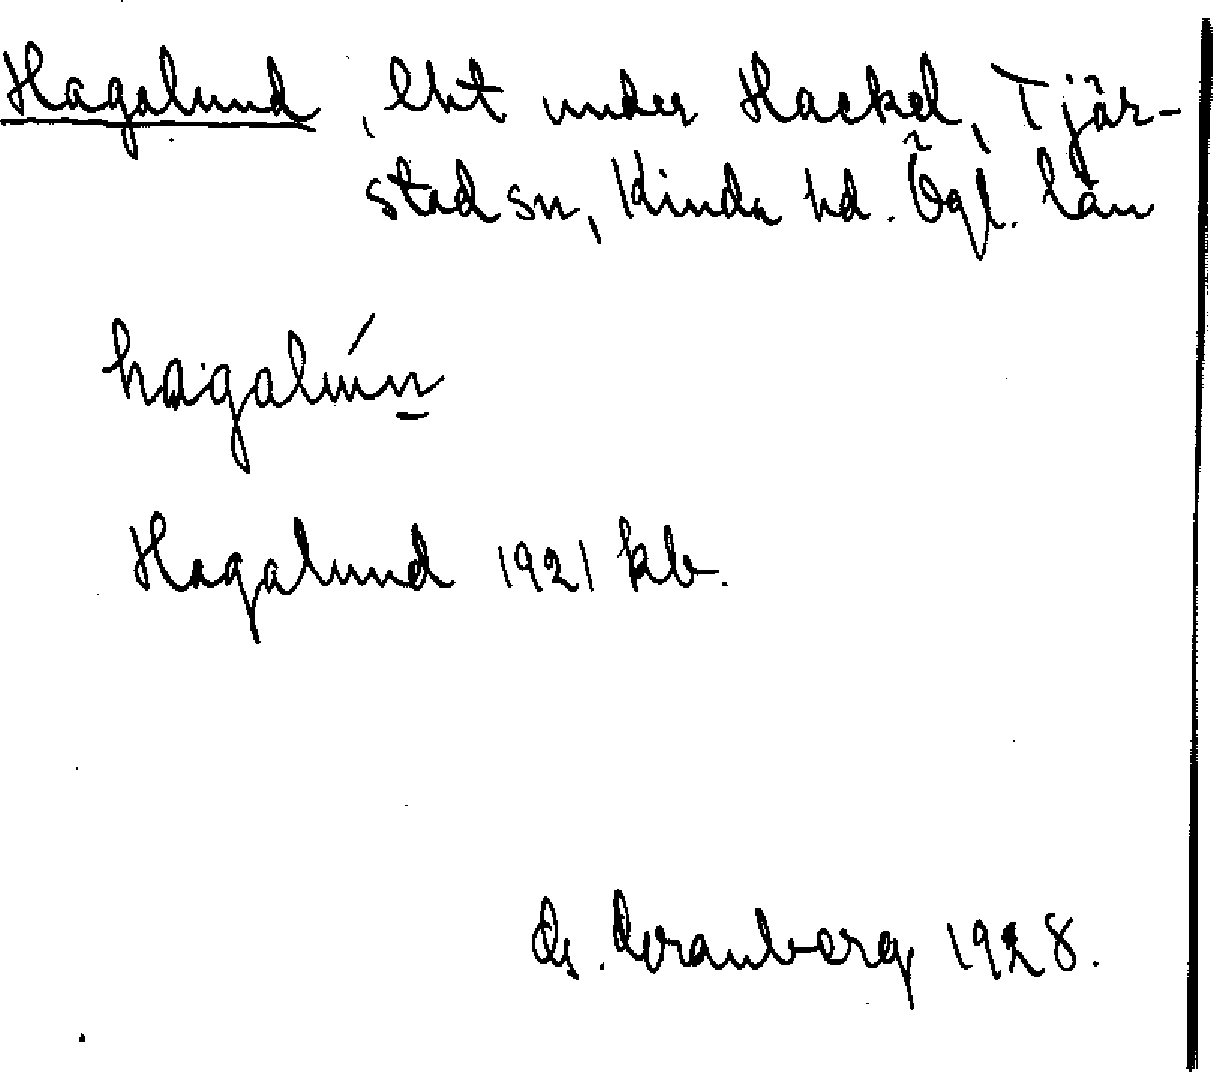 Hagalund, lht under Hackel, Tjär-
stad sn, Kinda hd. Ögl. län
hagalún
Hagalund 1921 kb.
1928.